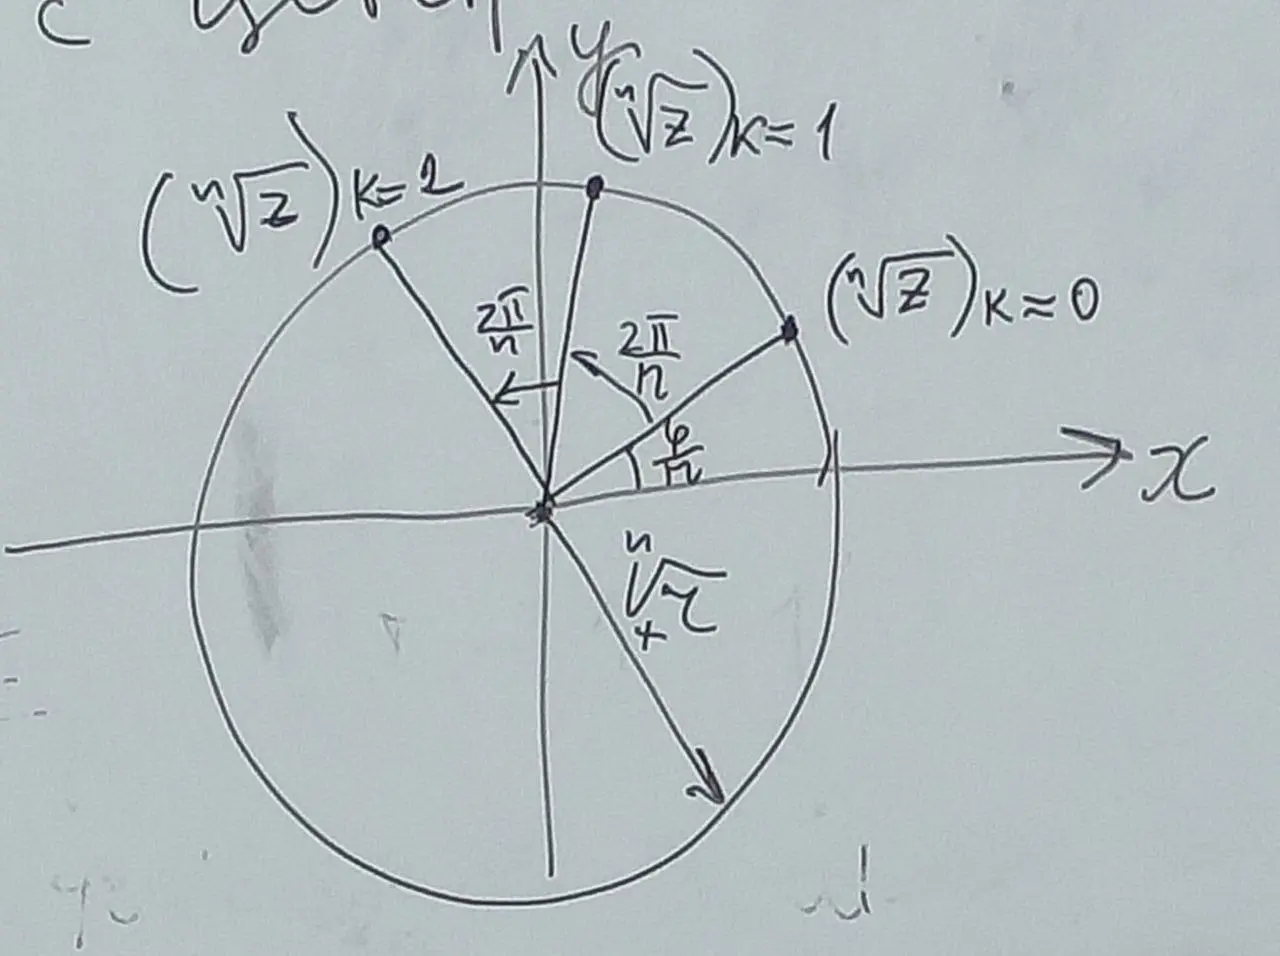 y
(ⁿ√z)k=1
(ⁿ√z)k=2
(ⁿ√z)k=0
2π/n
2π/n
φ/n
x
ⁿ√r
+